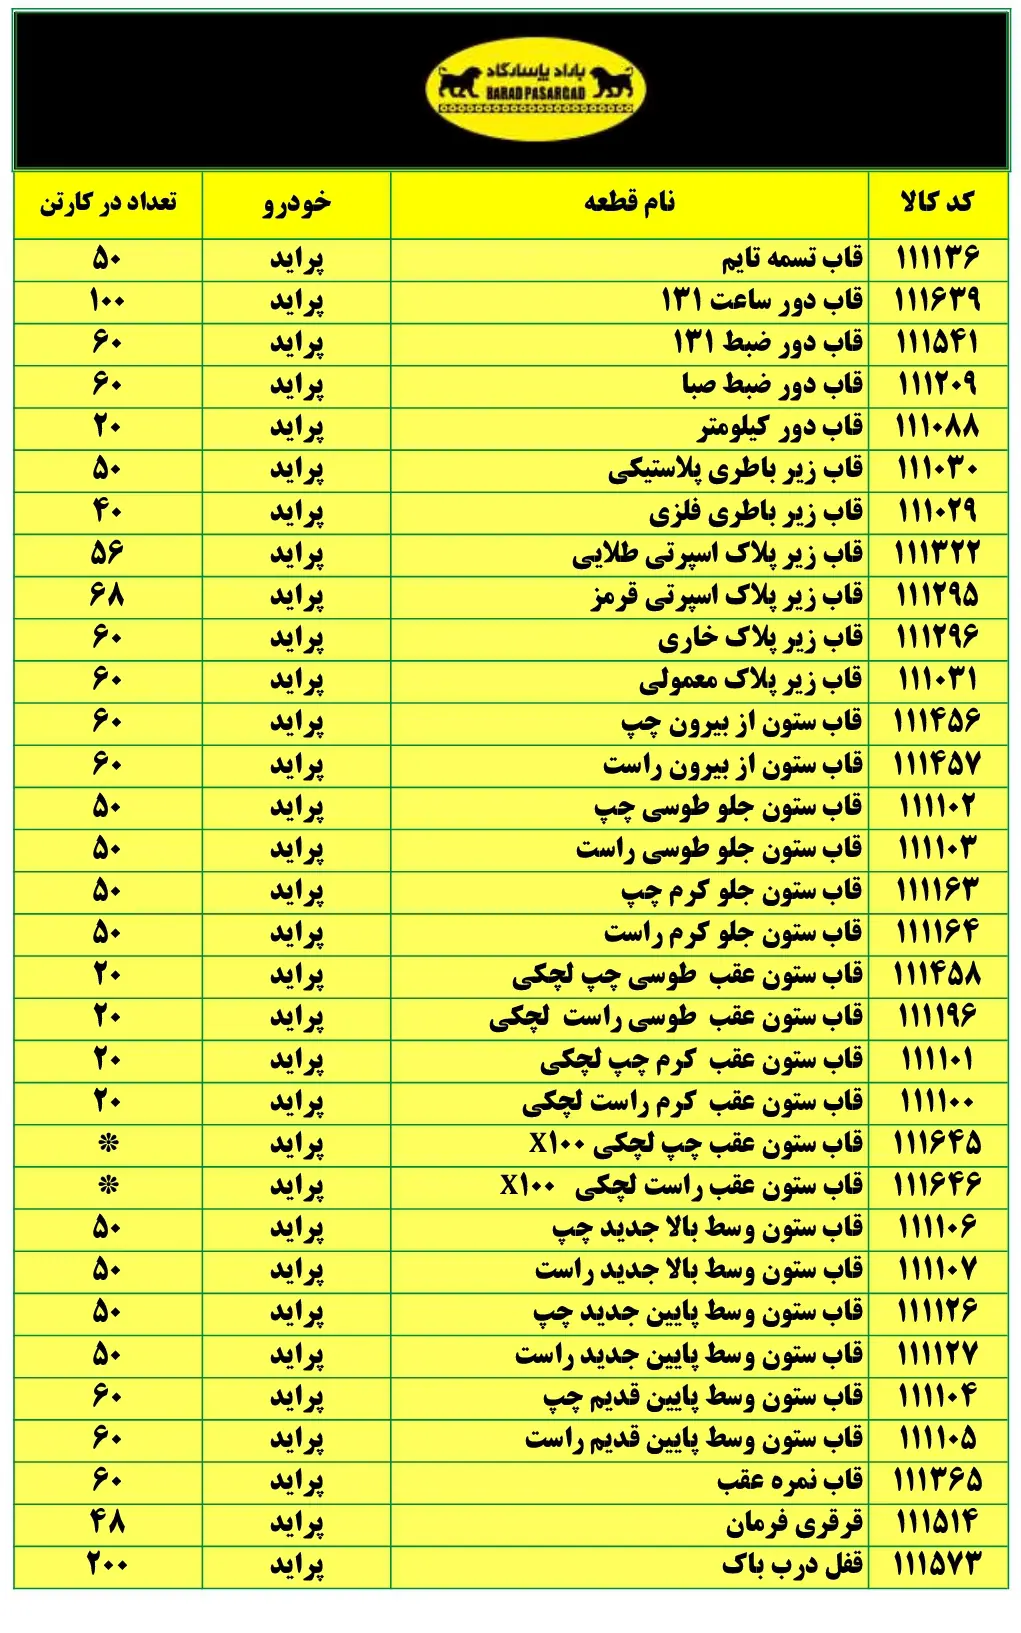 باراد پاسارگاد
BARAD PASARGAD
کد کالا نام قطعه خودرو تعداد در کارتن
۱۱۱۱۳۶ قاب تسمه تایم پراید ۵۰
۱۱۱۶۳۹ قاب دور ساعت ۱۳۱ پراید ۱۰۰
۱۱۱۵۴۱ قاب دور ضبط ۱۳۱ پراید ۶۰
۱۱۱۲۰۹ قاب دور ضبط صبا پراید ۶۰
۱۱۱۰۸۸ قاب دور کیلومتر پراید ۲۰
۱۱۱۰۳۰ قاب زیر باطری پلاستیکی پراید ۵۰
۱۱۱۰۲۹ قاب زیر باطری فلزی پراید ۴۰
۱۱۱۳۲۲ قاب زیر پلاک اسپرتی طلایی پراید ۵۶
۱۱۱۲۹۵ قاب زیر پلاک اسپرتی قرمز پراید ۶۸
۱۱۱۲۹۶ قاب زیر پلاک خاری پراید ۶۰
۱۱۱۰۳۱ قاب زیر پلاک معمولی پراید ۶۰
۱۱۱۴۵۶ قاب ستون از بیرون چپ پراید ۶۰
۱۱۱۴۵۷ قاب ستون از بیرون راست پراید ۶۰
۱۱۱۱۰۲ قاب ستون جلو طوسی چپ پراید ۵۰
۱۱۱۱۰۳ قاب ستون جلو طوسی راست پراید ۵۰
۱۱۱۱۶۳ قاب ستون جلو کرم چپ پراید ۵۰
۱۱۱۱۶۴ قاب ستون جلو کرم راست پراید ۵۰
۱۱۱۴۵۸ قاب ستون عقب طوسی چپ لچکی پراید ۲۰
۱۱۱۱۹۶ قاب ستون عقب طوسی راست لچکی پراید ۲۰
۱۱۱۱۰۱ قاب ستون عقب کرم چپ لچکی پراید ۲۰
۱۱۱۱۰۰ قاب ستون عقب کرم راست لچکی پراید ۲۰
۱۱۱۶۴۵ قاب ستون عقب چپ لچکی X۱۰۰ پراید *
۱۱۱۶۴۶ قاب ستون عقب راست لچکی X۱۰۰ پراید *
۱۱۱۱۰۶ قاب ستون وسط بالا جدید چپ پراید ۵۰
۱۱۱۱۰۷ قاب ستون وسط بالا جدید راست پراید ۵۰
۱۱۱۱۲۶ قاب ستون وسط پایین جدید چپ پراید ۵۰
۱۱۱۱۲۷ قاب ستون وسط پایین جدید راست پراید ۵۰
۱۱۱۱۰۴ قاب ستون وسط پایین قدیم چپ پراید ۶۰
۱۱۱۱۰۵ قاب ستون وسط پایین قدیم راست پراید ۶۰
۱۱۱۳۶۵ قاب نمره عقب پراید ۶۰
۱۱۱۵۱۴ قرقری فرمان پراید ۴۸
۱۱۱۵۷۳ قفل درب باک پراید ۲۰۰